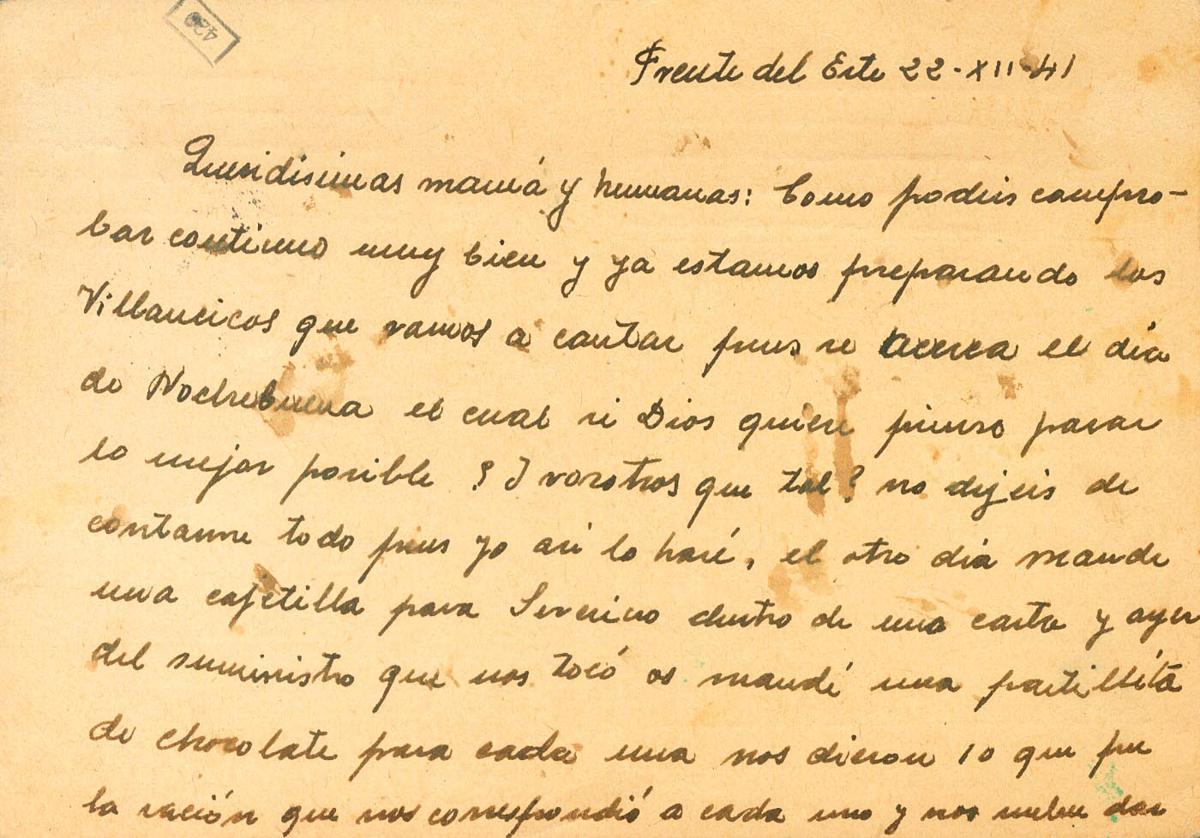 420
Frente del Este 22-XII-41
Queridisimas mamá y hermanas: Como podeis compro-
bar continuo muy bien y ya estamos preparando los
Villancicos que vamos a cantar pues se acerca el dia
de Nochebuena el cual si Dios quiere pienso pasar
lo mejor posible ? Y vosotros que tal? no dejeis de
contarme todo pues yo asi lo haré, el otro dia mande
una cajetilla para Severino dentro de una carta y ayer
del suministro que nos tocó os mandé una pastillita
de chocolate para cada una nos dieron 10 que fue
la ración que nos correspondió a cada uno y nos suelen dar